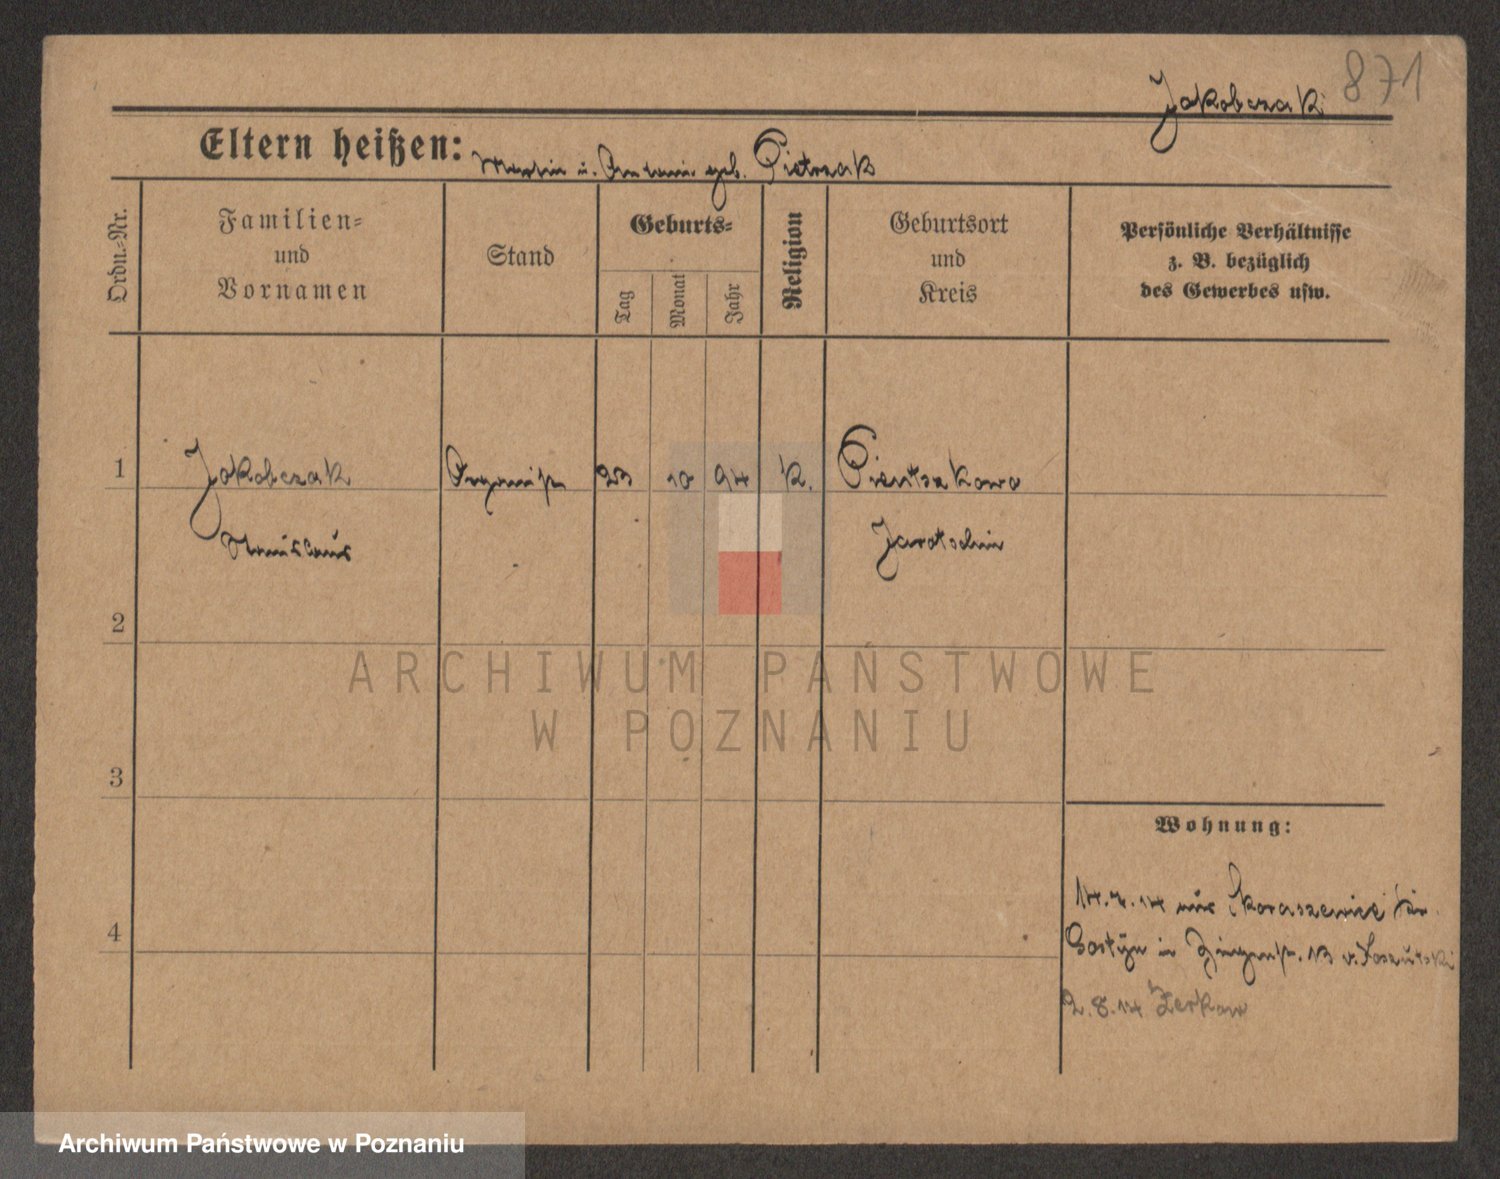 871
Jakobczak
Eltern heißen: Martin u. Antonie geb. Pietrzak
Ordn.-Nr.
Familien-
und
Vornamen
Stand
Geburts-
Tag
Monat
Jahr
Religion
Geburtsort
und
Kreis
Persönliche Verhältnisse
z. B. bezüglich
des Gewerbes usw.
1
Jakobczak
Organist
23
10
94
K.
Stanislaus
Jarotschin
2
ARCHIWUM PAŃSTWOWE
W POZNANIU
3
Wohnung:
14.7.14 aus Skoraszewice
4
Gostyn in 13 v.
2.8.14 Zerkow
Archiwum Państwowe w Poznaniu